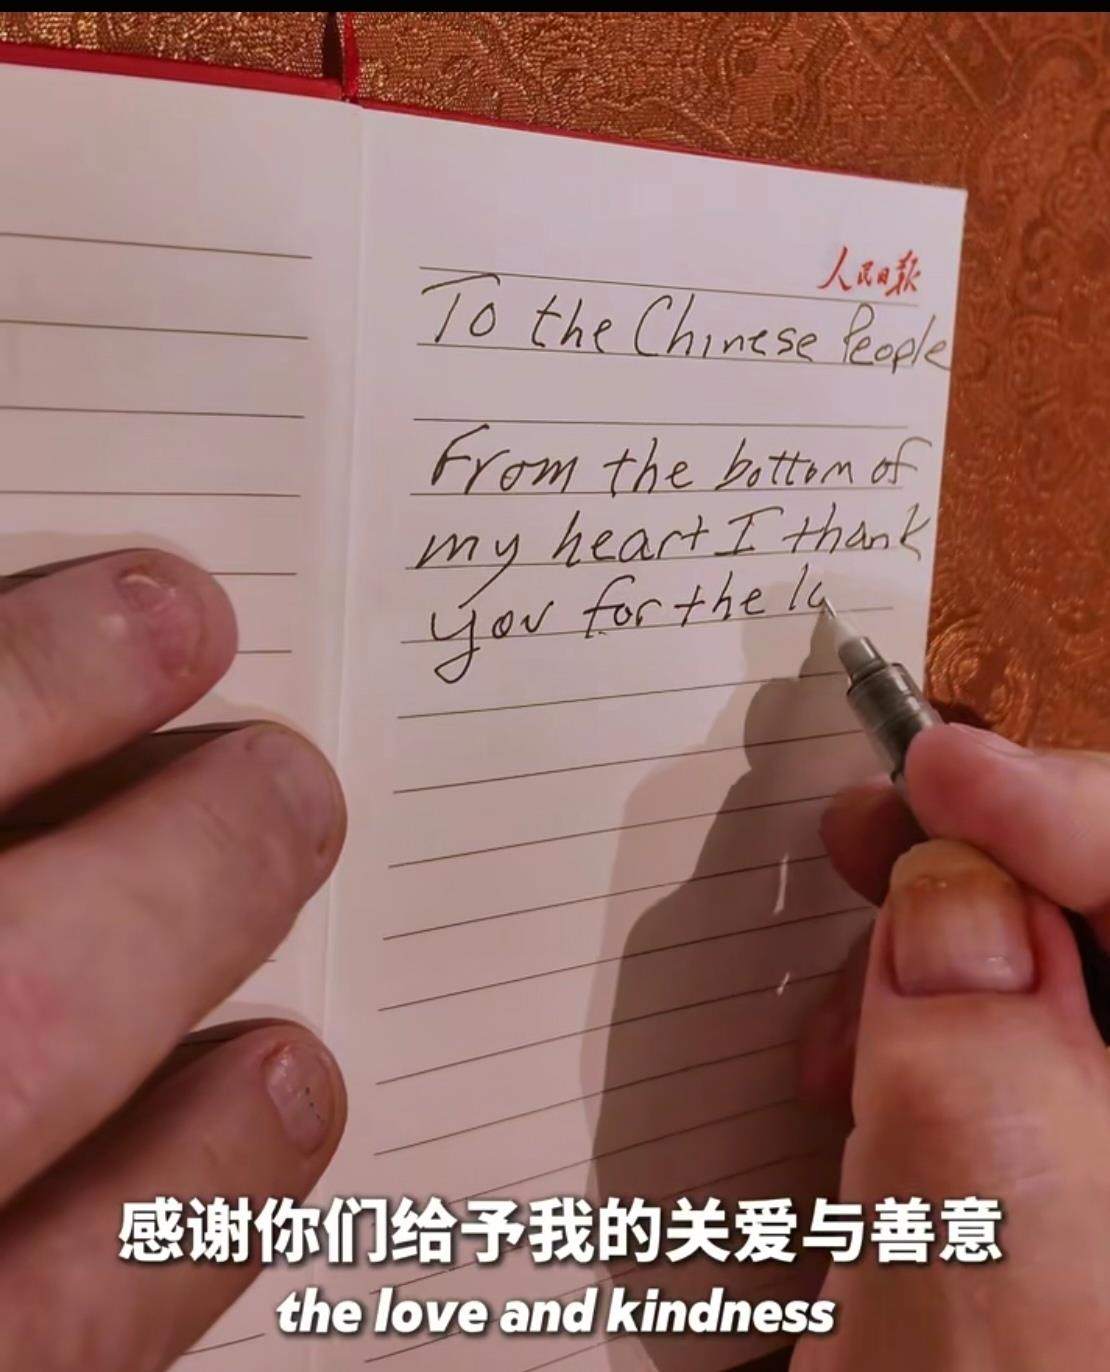 人民日报
To the Chinese People
From the bottom of
my heart I thank
you for the lo
感谢你们给予我的关爱与善意
the love and kindness